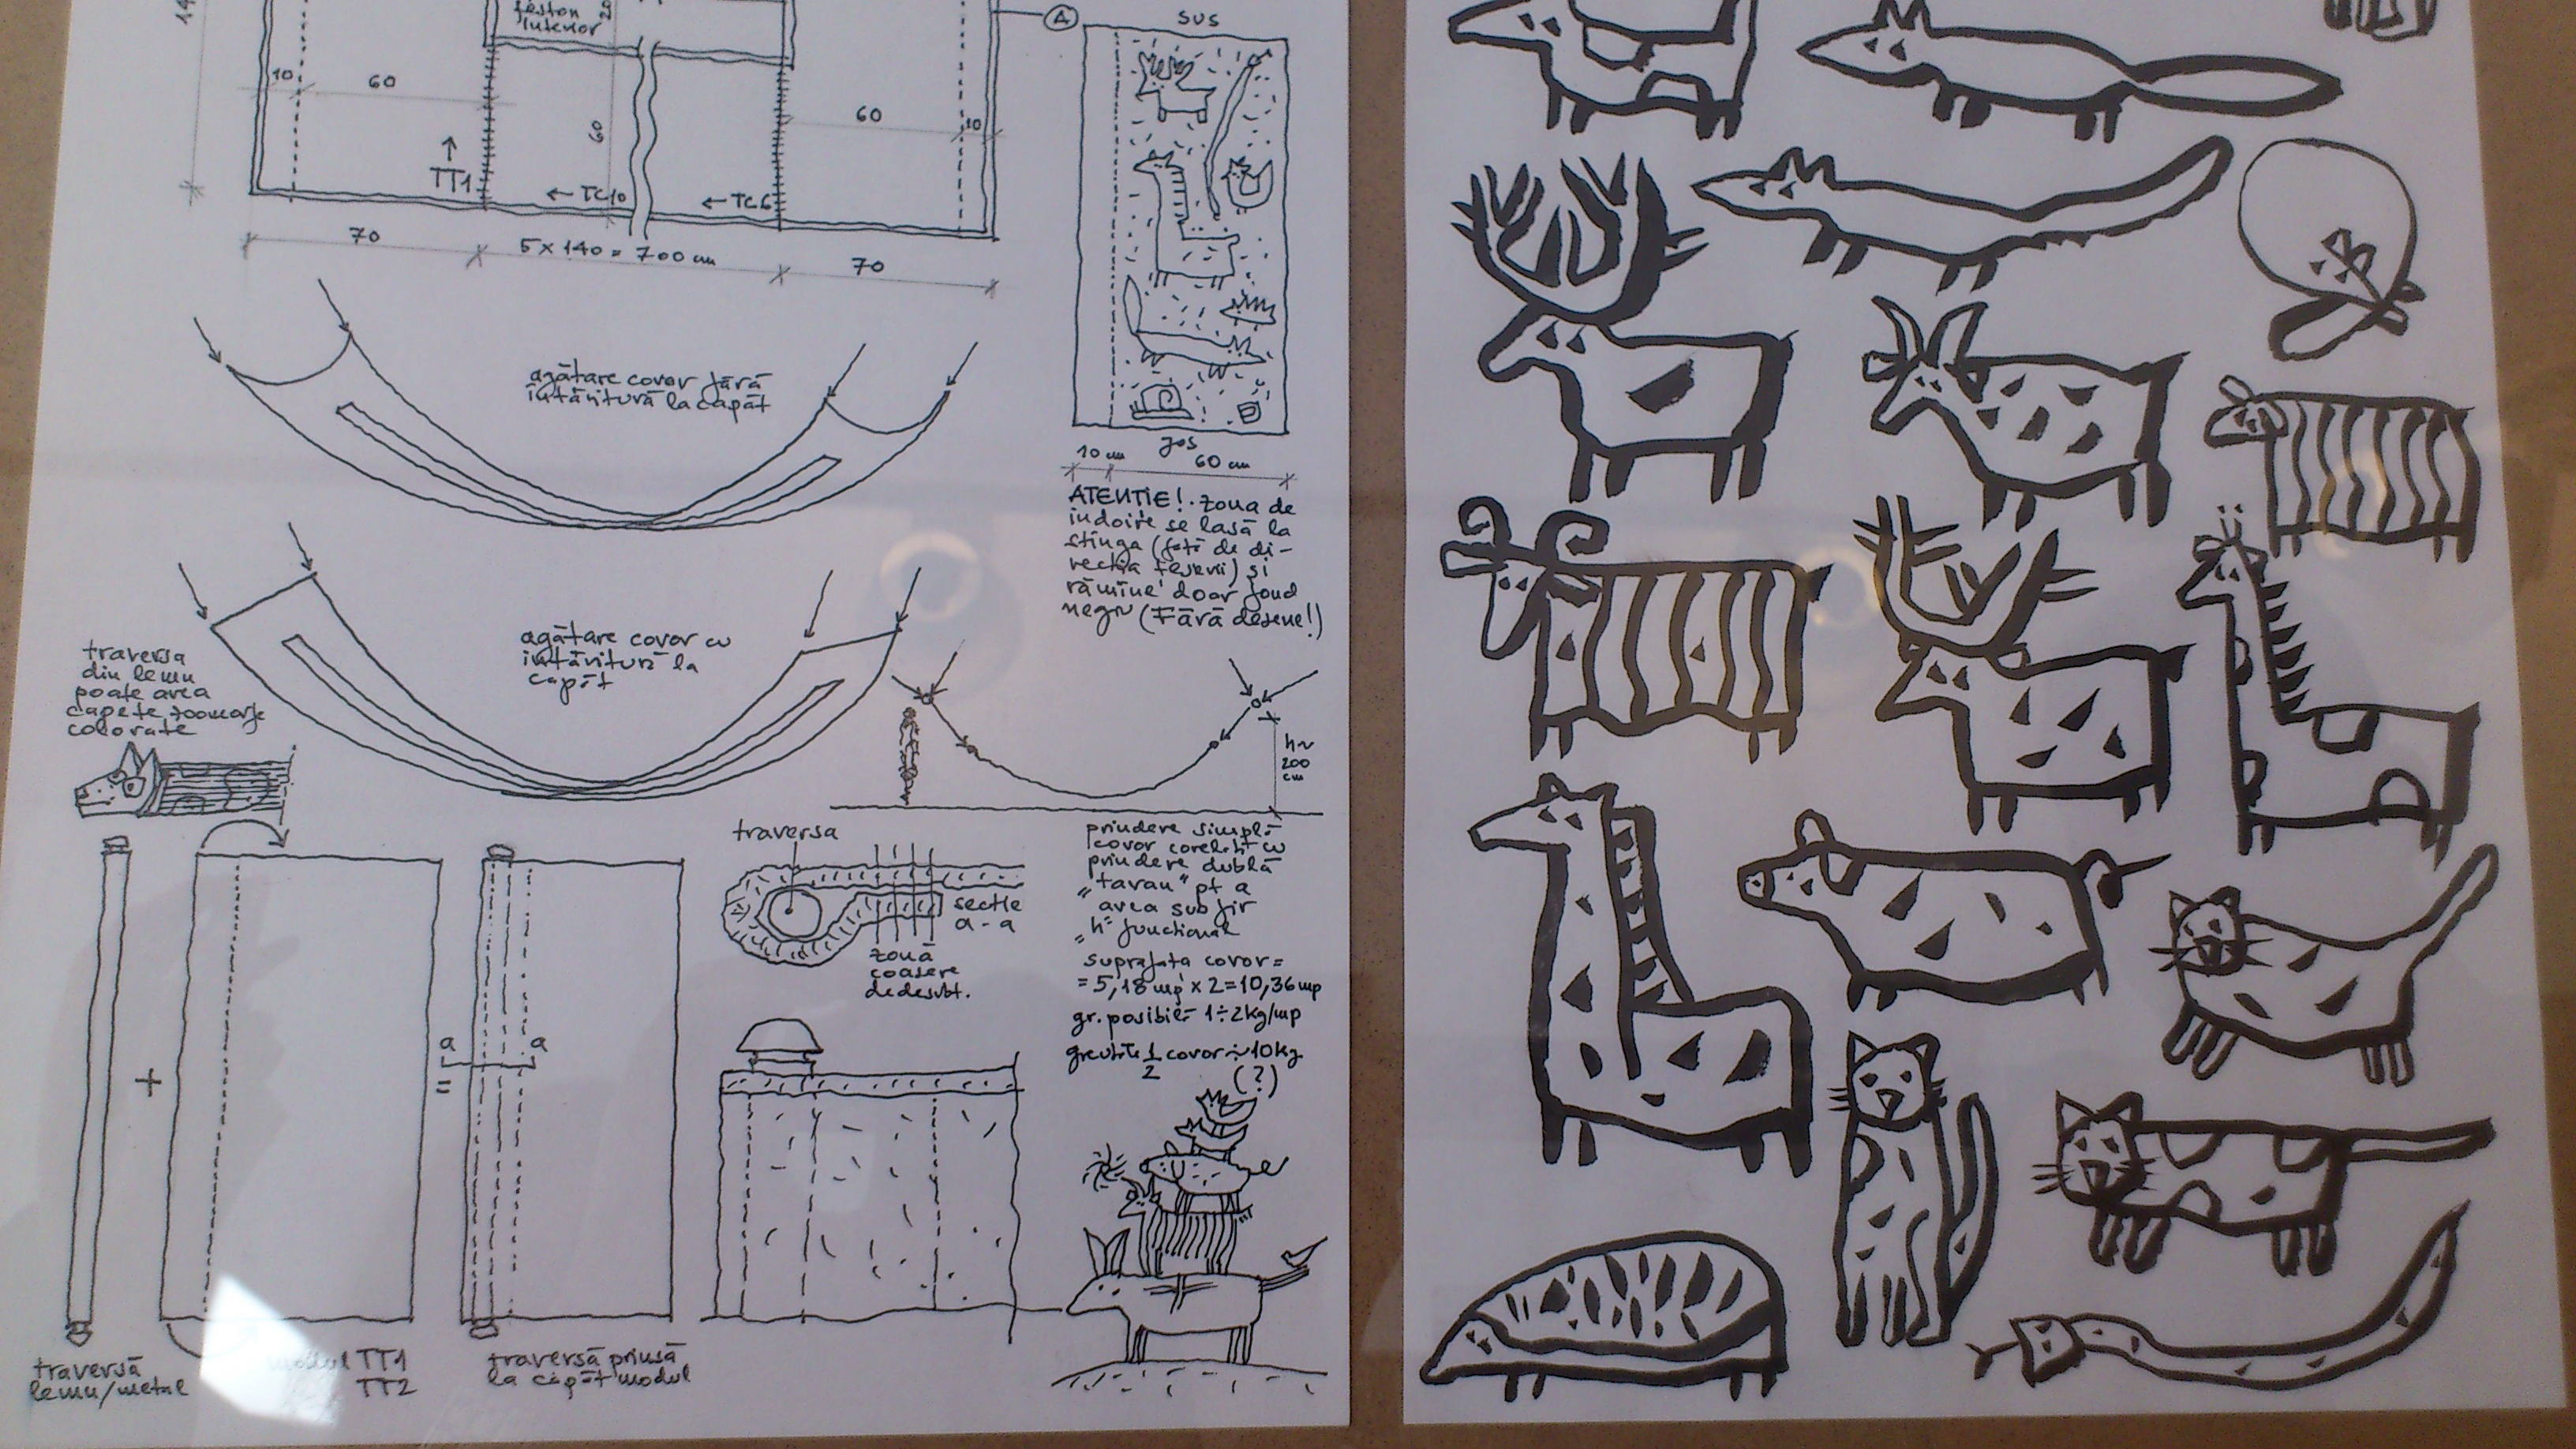 feston
interior
20
A
SUS
10
60
60
60
10
TT1
← TC10
← TC6
70
5 x 140 = 700 cm
70
agătare covor fără
întăritură la capăt
jos
10 cm
60 cm
ATENTIE! zona de
indoire se lasă la
stinga (față de di-
rectia țeserii) și
rămîne doar fond
negru (Fără desene!)
agătare covor cu
întăritură la
capăt
traversa
din lemn
poate avea
capete zoomorfe
colorate
h~
200
cm
traversa
sectie
a-a
zonă
coasere
dedesubt.
prindere simplă
covor corelată cu
prindere dublă
"tavan" pt a
avea sub fir
"h" functional
suprafata covor =
= 5,18 mp x 2 = 10,36 mp
gr. posibilă 1÷2kg/mp
greutate 1/2 covor ~ 10kg
(?)
+
a
a
=
traversă
lemn/metal
modul TT1
TT2
traversă prinsă
la capăt modul